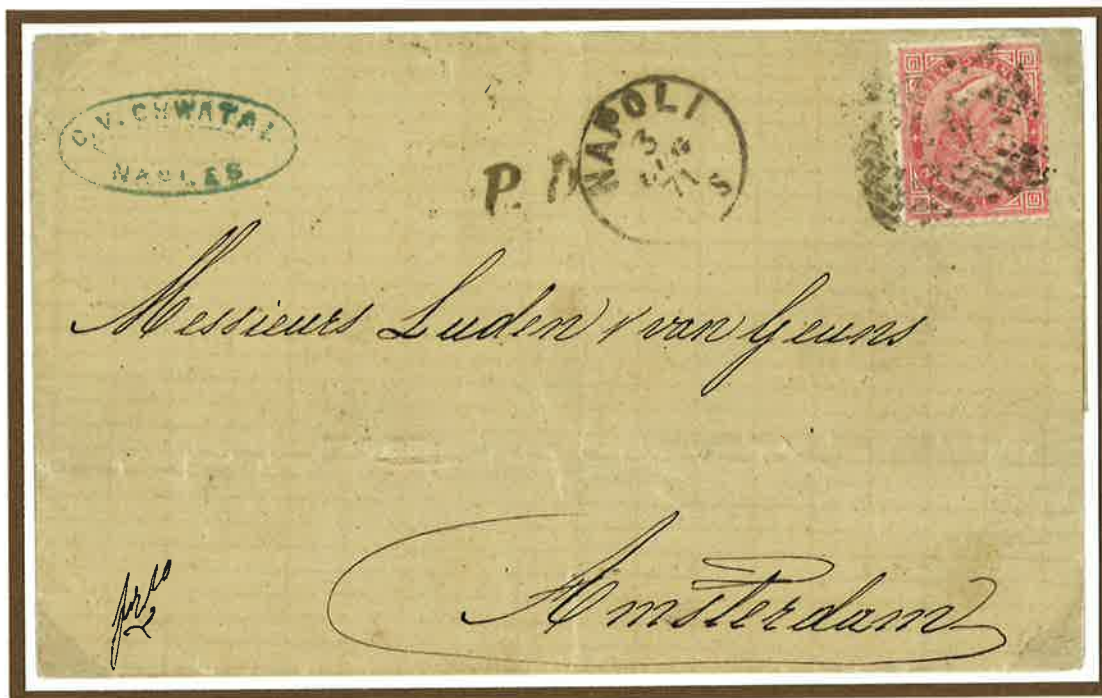 C. V. CHWATAL
NAPLES
P. D
NAPOLI
3
71
S
Messieurs Luden & van Geuns
fr.co
Amsterdam